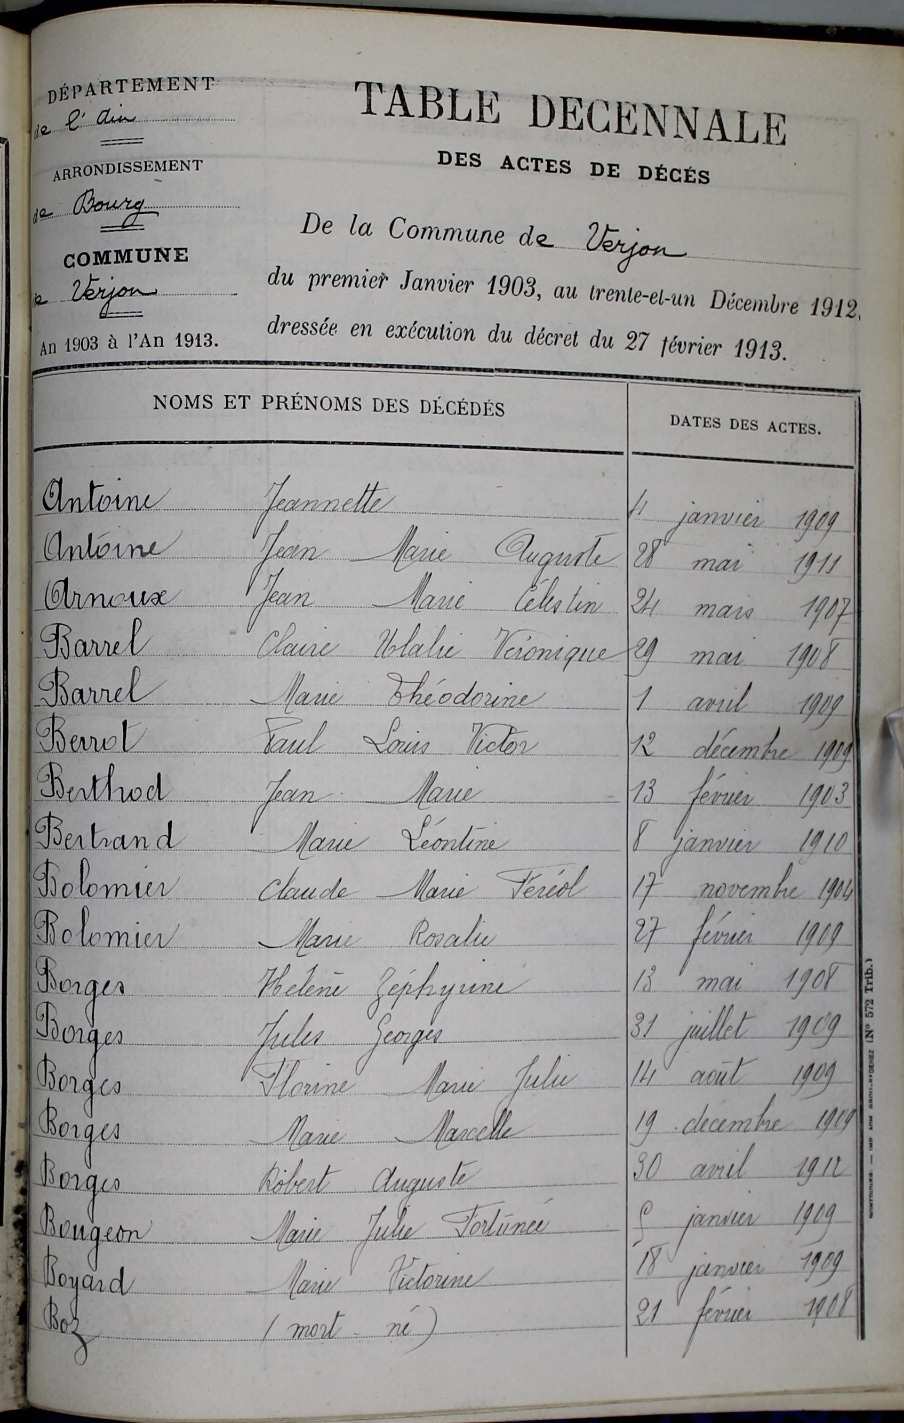 DÉPARTEMENT
de l'Ain
ARRONDISSEMENT
de Bourg
COMMUNE
de Verjon
An 1903 à l'An 1913.
TABLE DECENNALE
DES ACTES DE DÉCÉS
De la Commune de Verjon
du premier Janvier 1903, au trente-et-un Décembre 1912,
dressée en exécution du décret du 27 février 1913.
NOMS ET PRÉNOMS DES DÉCÉDÉS DATES DES ACTES.
Antoine Jeannette 4 janvier 1909
Antoine Jean Marie Auguste 28 mai 1911
Arnoux Jean Marie Célestin 24 mars 1907
Barrel Claire Ulalie Véronique 29 mai 1908
Barrel Marie Théodorine 1 avril 1909
Berrot Paul Louis Victor 12 décembre 1909
Berthod Jean Marie 13 février 1903
Bertrand Marie Léontine 8 janvier 1910
Bolomier Claude Marie Féréol 17 novembre 1904
Bolomier Marie Rosalie 27 février 1909
Borges Hélène Zéphyrine 13 mai 1908
Borges Jules Georges 31 juillet 1909
Borges Florine Marie Julie 14 août 1909
Borges Marie Marcelle 19 décembre 1909
Borges Robert Auguste 30 avril 1912
Bougeon Marie Julie Fortunée 5 janvier 1909
Boyard Marie Victorine 18 janvier 1909
Boz (mort-né) 21 février 1908
(N° 572 Trib.)